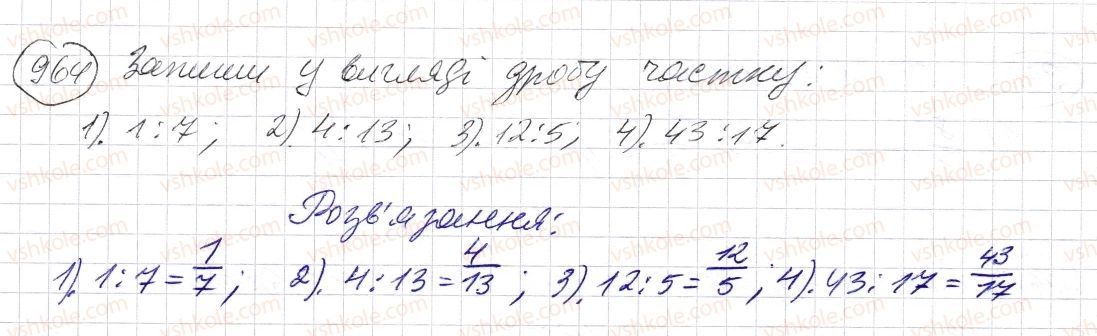 964 Запиши у вигляді дробу частку:
1). 1:7; 2). 4:13; 3). 12:5; 4). 43:17.
Розв'язання:
1). 1:7 = 1/7; 2). 4:13 = 4/13; 3). 12:5 = 12/5; 4). 43:17 = 43/17